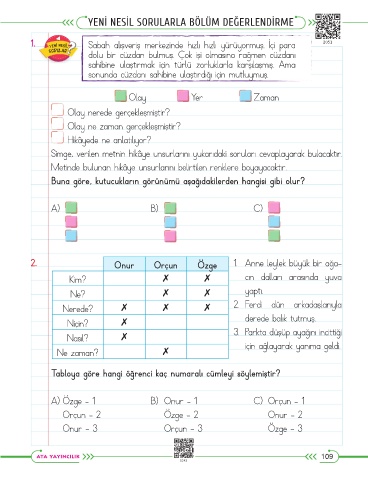 YENİ NESİL SORULARLA BÖLÜM DEĞERLENDİRME
1. YENİ NESİL SORULAR
Sabah alışveriş merkezinde hızlı hızlı yürüyormuş. İçi para
dolu bir cüzdan bulmuş. Çok işi olmasına rağmen cüzdanı
sahibine ulaştırmak için türlü zorluklarla karşılaşmış. Ama
sonunda cüzdanı sahibine ulaştırdığı için mutluymuş.
Olay Yer Zaman
Olay nerede gerçekleşmiştir?
Olay ne zaman gerçekleşmiştir?
Hikâyede ne anlatılıyor?
Simge, verilen metnin hikâye unsurlarını yukarıdaki soruları cevaplayarak bulacaktır.
Metinde bulunan hikâye unsurlarını belirtilen renklere boyayacaktır.
Buna göre, kutucukların görünümü aşağıdakilerden hangisi gibi olur?
A) B) C)
2.
Onur Orçun Özge
Kim? ✗ ✗
Ne? ✗ ✗
Nerede? ✗ ✗ ✗
Niçin? ✗
Nasıl? ✗
Ne zaman? ✗
1. Anne leylek büyük bir ağa-
cın dalları arasında yuva
yaptı.
2. Ferdi dün arkadaşlarıyla
derede balık tutmuş.
3. Parkta düşüp ayağını incittiği
için ağlayarak yanıma geldi.
Tabloya göre hangi öğrenci kaç numaralı cümleyi söylemiştir?
A) Özge - 1 B) Onur - 1 C) Orçun - 1
Orçun - 2 Özge - 2 Onur - 2
Onur - 3 Orçun - 3 Özge - 3
ATA YAYINCILIK 109